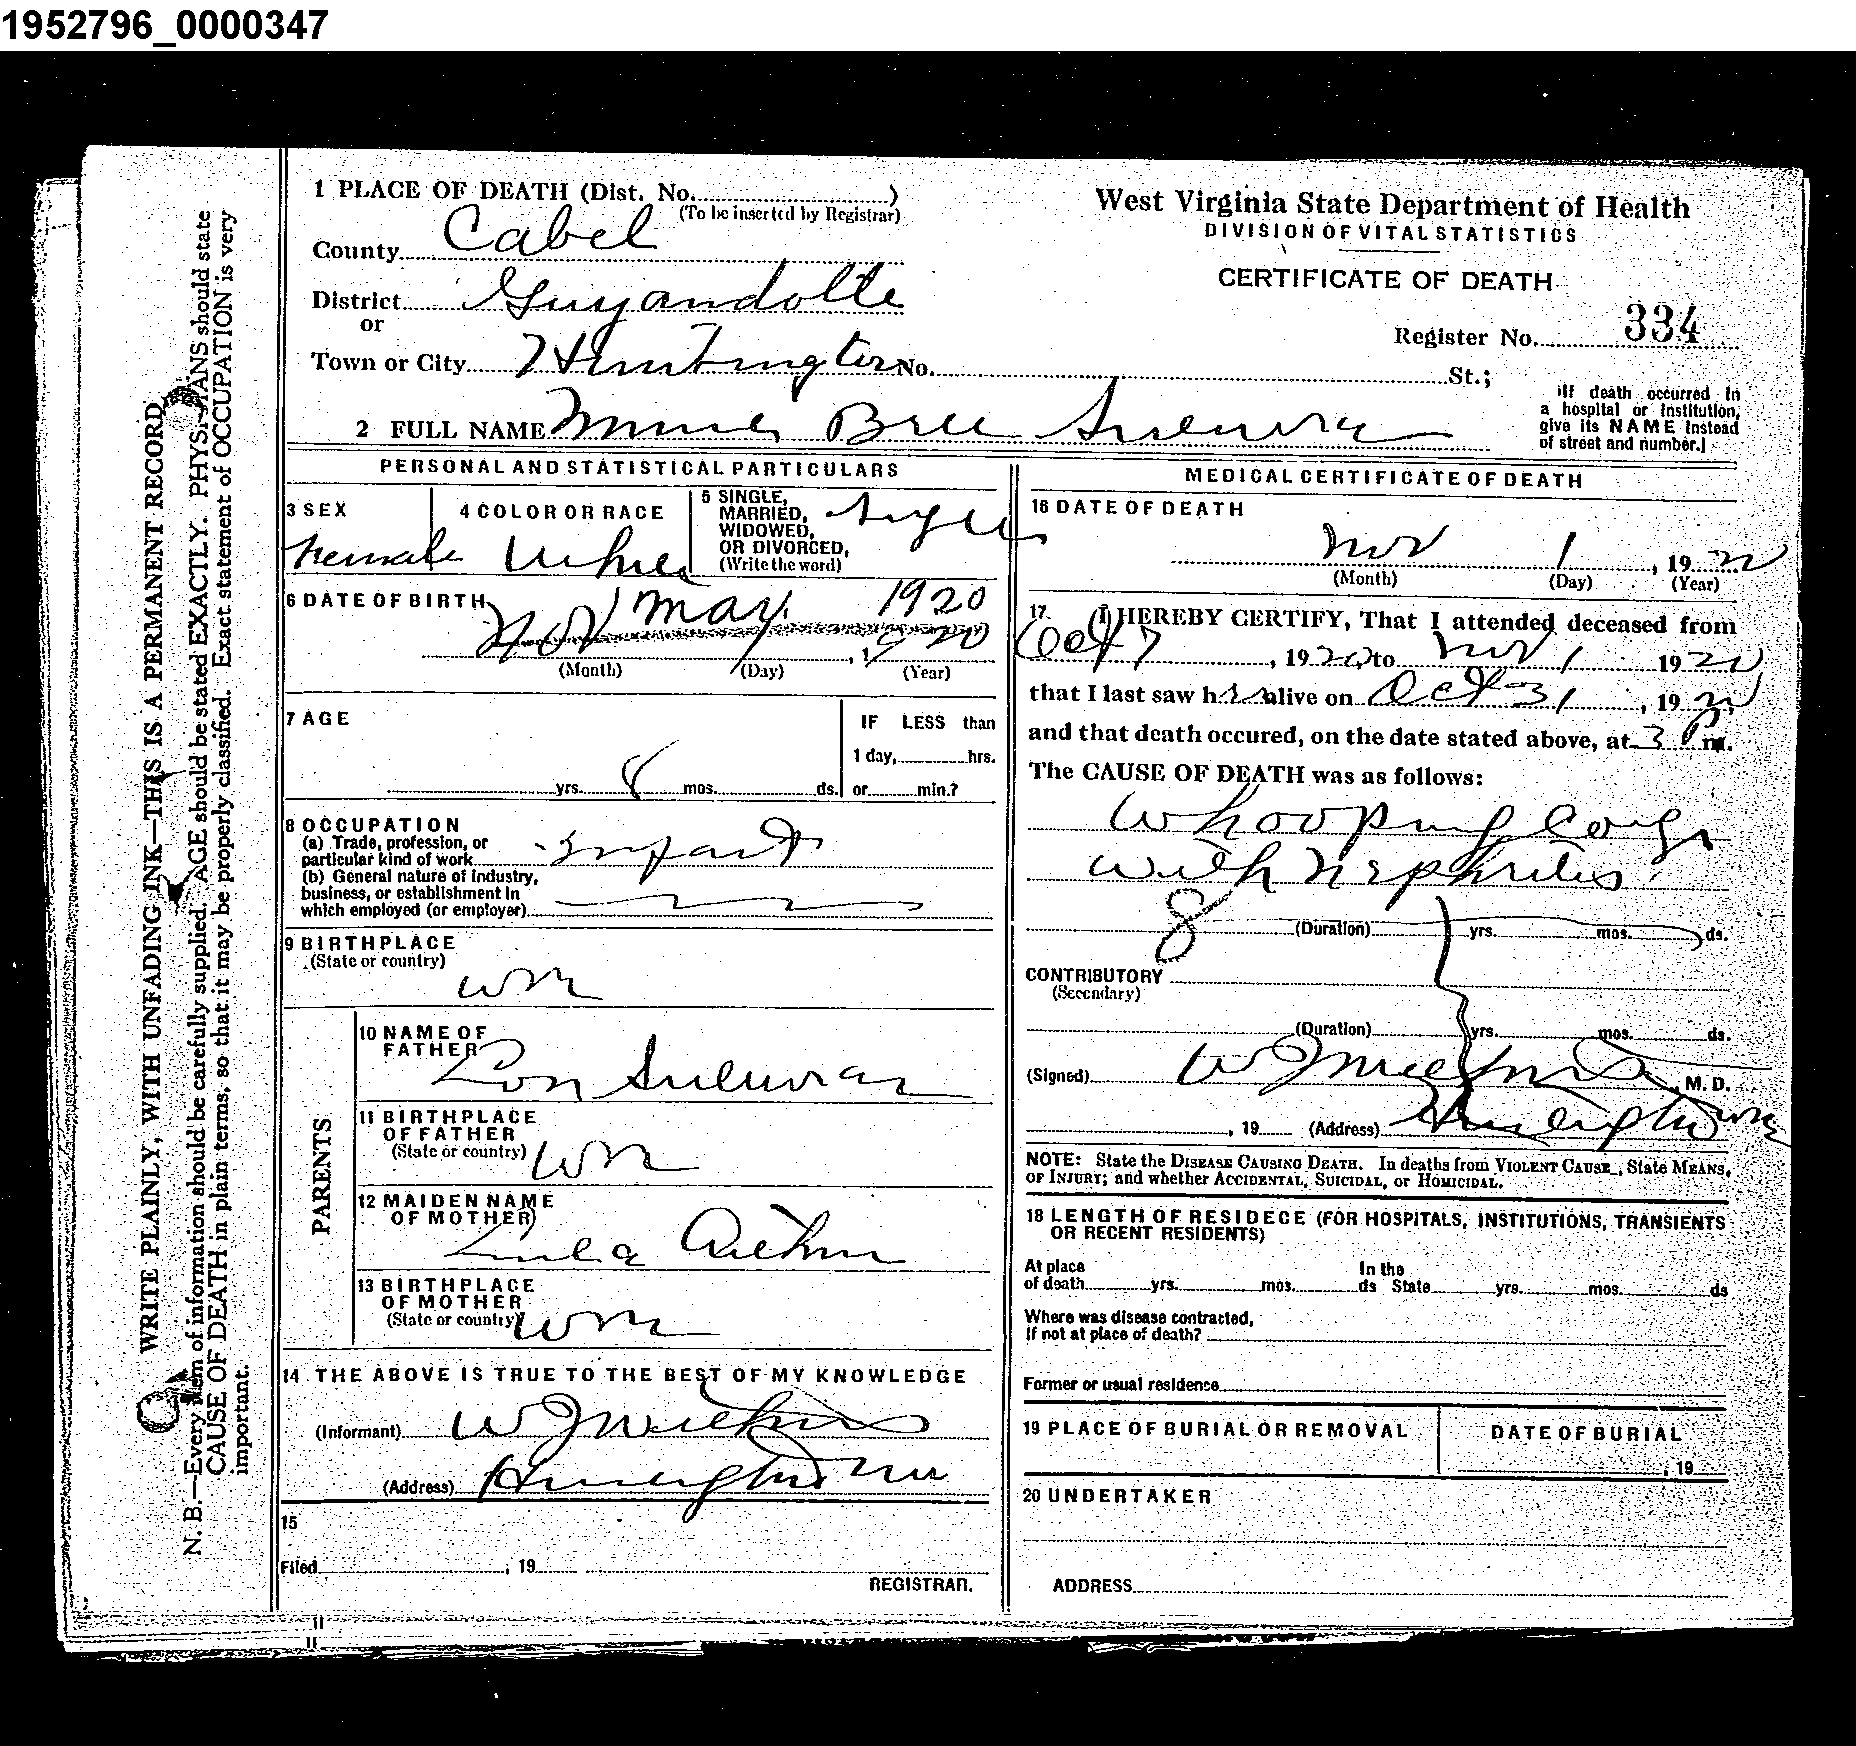 1952796_0000347
1 PLACE OF DEATH (Dist. No. )
(To be inserted by Registrar)
County Cabel
District Guyandotte
or
Town or City Huntington No. St.;
West Virginia State Department of Health
DIVISION OF VITAL STATISTICS
CERTIFICATE OF DEATH
Register No. 334
[If death occurred in
a hospital or institution,
give its NAME instead
of street and number.]
2 FULL NAME
PERSONAL AND STATISTICAL PARTICULARS
3 SEX
Female
4 COLOR OR RACE
White
5 SINGLE,
MARRIED,
WIDOWED,
OR DIVORCED,
(Write the word)
Single
6 DATE OF BIRTH
May 1920
Nov 1 1920
(Month) (Day) (Year)
7 AGE
yrs. 8 mos. ds.
IF LESS than
1 day, hrs.
or min.?
8 OCCUPATION
(a) Trade, profession, or
particular kind of work Infant
(b) General nature of industry,
business, or establishment in
which employed (or employer)
9 BIRTHPLACE
(State or country)
PARENTS
10 NAME OF
FATHER
Lon Sullivan
11 BIRTHPLACE
OF FATHER
(State or country)
12 MAIDEN NAME
OF MOTHER
Lula
13 BIRTHPLACE
OF MOTHER
(State or country)
14 THE ABOVE IS TRUE TO THE BEST OF MY KNOWLEDGE
(Informant) W J
(Address) Huntington
15
Filed , 19
REGISTRAR.
MEDICAL CERTIFICATE OF DEATH
16 DATE OF DEATH
Nov 1 , 1920
(Month) (Day) (Year)
17 I HEREBY CERTIFY, That I attended deceased from
Oct 7 , 1920 to Nov 1 1920
that I last saw h alive on Oct 31 , 1920
and that death occured, on the date stated above, at 3 P m.
The CAUSE OF DEATH was as follows:
Whooping Cough
with Nephritis
(Duration) yrs. mos. ds.
CONTRIBUTORY
(Secondary)
(Duration) yrs. mos. ds.
(Signed) W J M. D.
, 19 (Address) Huntington
NOTE: State the DISEASE CAUSING DEATH. In deaths from VIOLENT CAUSE, State MEANS,
OF INJURY; and whether ACCIDENTAL, SUICIDAL, or HOMICIDAL.
18 LENGTH OF RESIDECE (FOR HOSPITALS, INSTITUTIONS, TRANSIENTS
OR RECENT RESIDENTS)
At place In the
of death yrs. mos. ds State yrs. mos. ds
Where was disease contracted,
If not at place of death?
Former or usual residence
19 PLACE OF BURIAL OR REMOVAL
DATE OF BURIAL
, 19
20 UNDERTAKER
ADDRESS
WRITE PLAINLY, WITH UNFADING INK—THIS IS A PERMANENT RECORD
N. B.—Every item of information should be carefully supplied. AGE should be stated EXACTLY. PHYSICIANS should state
CAUSE OF DEATH in plain terms, so that it may be properly classified. Exact statement of OCCUPATION is very
important.